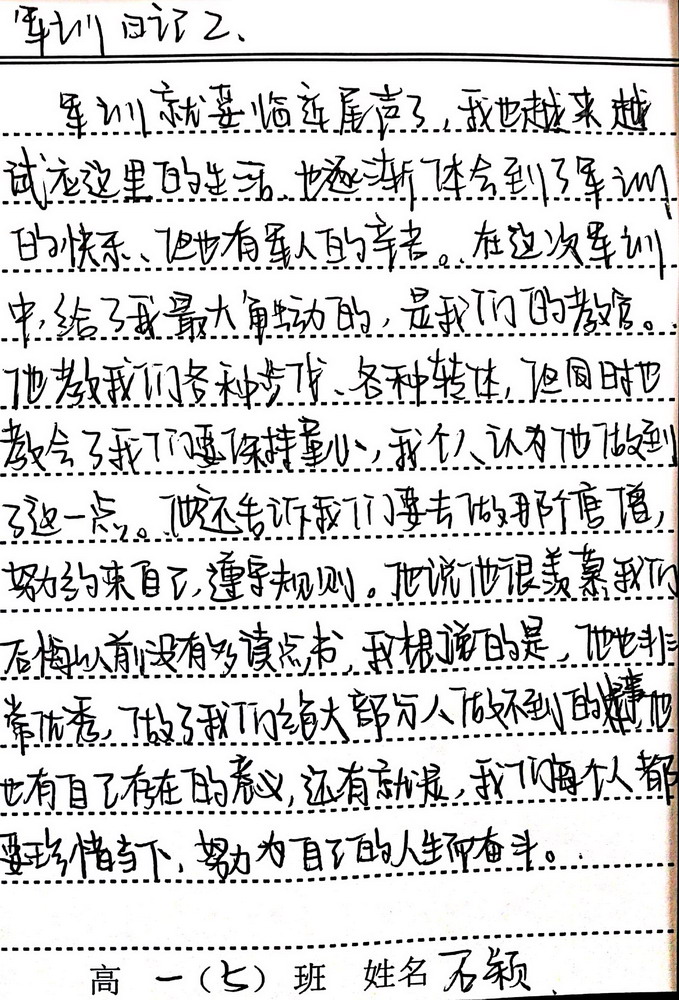 军训日记2.
军训就要临近尾声了,我也越来越
试应这里的生活、也逐渐体会到了军训
的快乐、但也有军人的辛苦。在这次军训
中,给了我最大触动的,是我们的教官。
他教我们各种步伐、各种转体,但同时也
教会了我们要保持童心,我个人认为他做到
了这一点。他还告诉我们要去做那个唐僧,
努力约束自己,遵守规则。他说他很羡慕我们
后悔以前没有多读点书,我想说的是,他也非
常优秀,做了我们绝大部分人做不到的事,他
也有自己存在的意义,还有就是,我们每个人都
要珍惜当下,努力为自己的人生而奋斗。
高 一(七)班 姓名 石颖